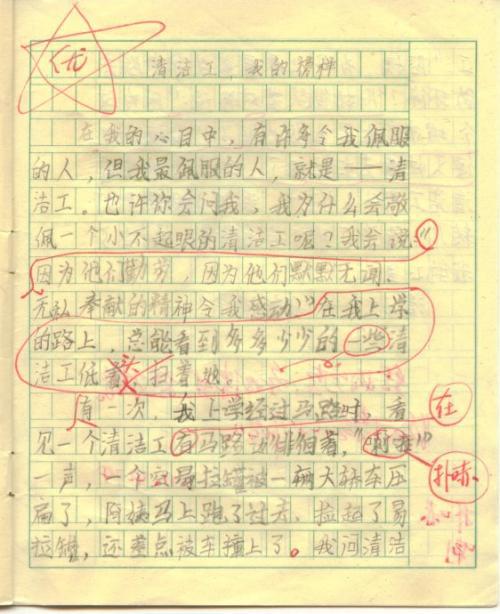 优
清洁工，我的榜样
在我的心目中，有许多令我佩服
的人，但我最佩服的人，就是——清
洁工。也许你会问我，我为什么会敬
佩一个小不起眼的清洁工呢？我会说：“
因为他们勤劳，因为他们默默无闻、
无私奉献的精神令我感动”在我上学
的路上，总能看到多多少少的一些清
洁工低着头扫着地。
有一次，我上学经过马路时，看
见一个清洁工有马路边徘徊着，“啊哇”
在
一声，一个空易拉罐被一辆大轿车压
扑哧
扁了，阿姨马上跑了过去，捡起了易
拉罐，还差点被车撞上了。我问清洁